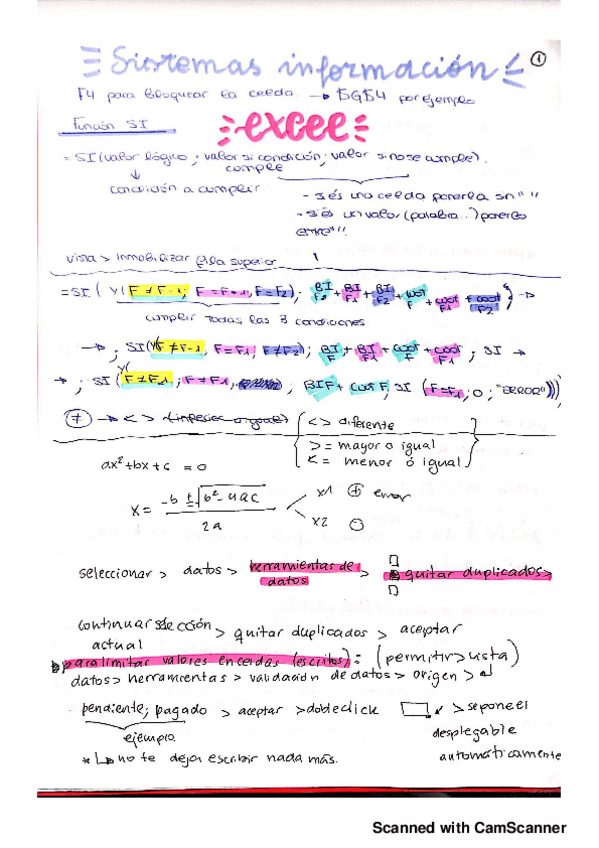 Sistemas información 1
F4 para bloquear la celda → $G$4 por ejemplo
Función SI
excel
=SI(valor lógico ; valor si condición ; valor si no se cumple).
cumple
condición a cumplir
- si és una celda ponerla sin " "
- si és un valor (palabra...) ponerlo
entre " ".
vista > inmobilizar fila superior
=SI( Y(F≠F-1; F=F+1, F=F2); BI F2 + BI F1 + BI F2 + cost F + cost F1 + cost F2 } →
cumplir todas las 3 condiciones
→ ; SI(Y(F≠F-1, F=F1; F≠F2); BI F + BI F1 + cost F + cost F1 ; SI →
→ ; SI(Y(F≠F-1; F≠F1, ; BIF + cost F; SI (F=F1; 0 ; "ERROR")))
≠ → < > (inferior o igual) < > diferente
>= mayor o igual
<= menor ó igual
ax²+bx+c = 0
x = -b ± √b²-4ac / 2a
x1 + error
x2 -
seleccionar > datos > herramientas de datos > quitar duplicados >
continuar selección actual > quitar duplicados > aceptar
para limitar valores en celdas (escritos): (permitir > lista)
datos > herramientas > validación de datos > origen >
pendiente; pagado > aceptar > doble click > se pone el
ejemplo desplegable
* no te deja escribir nada más. automáticamente
Scanned with CamScanner